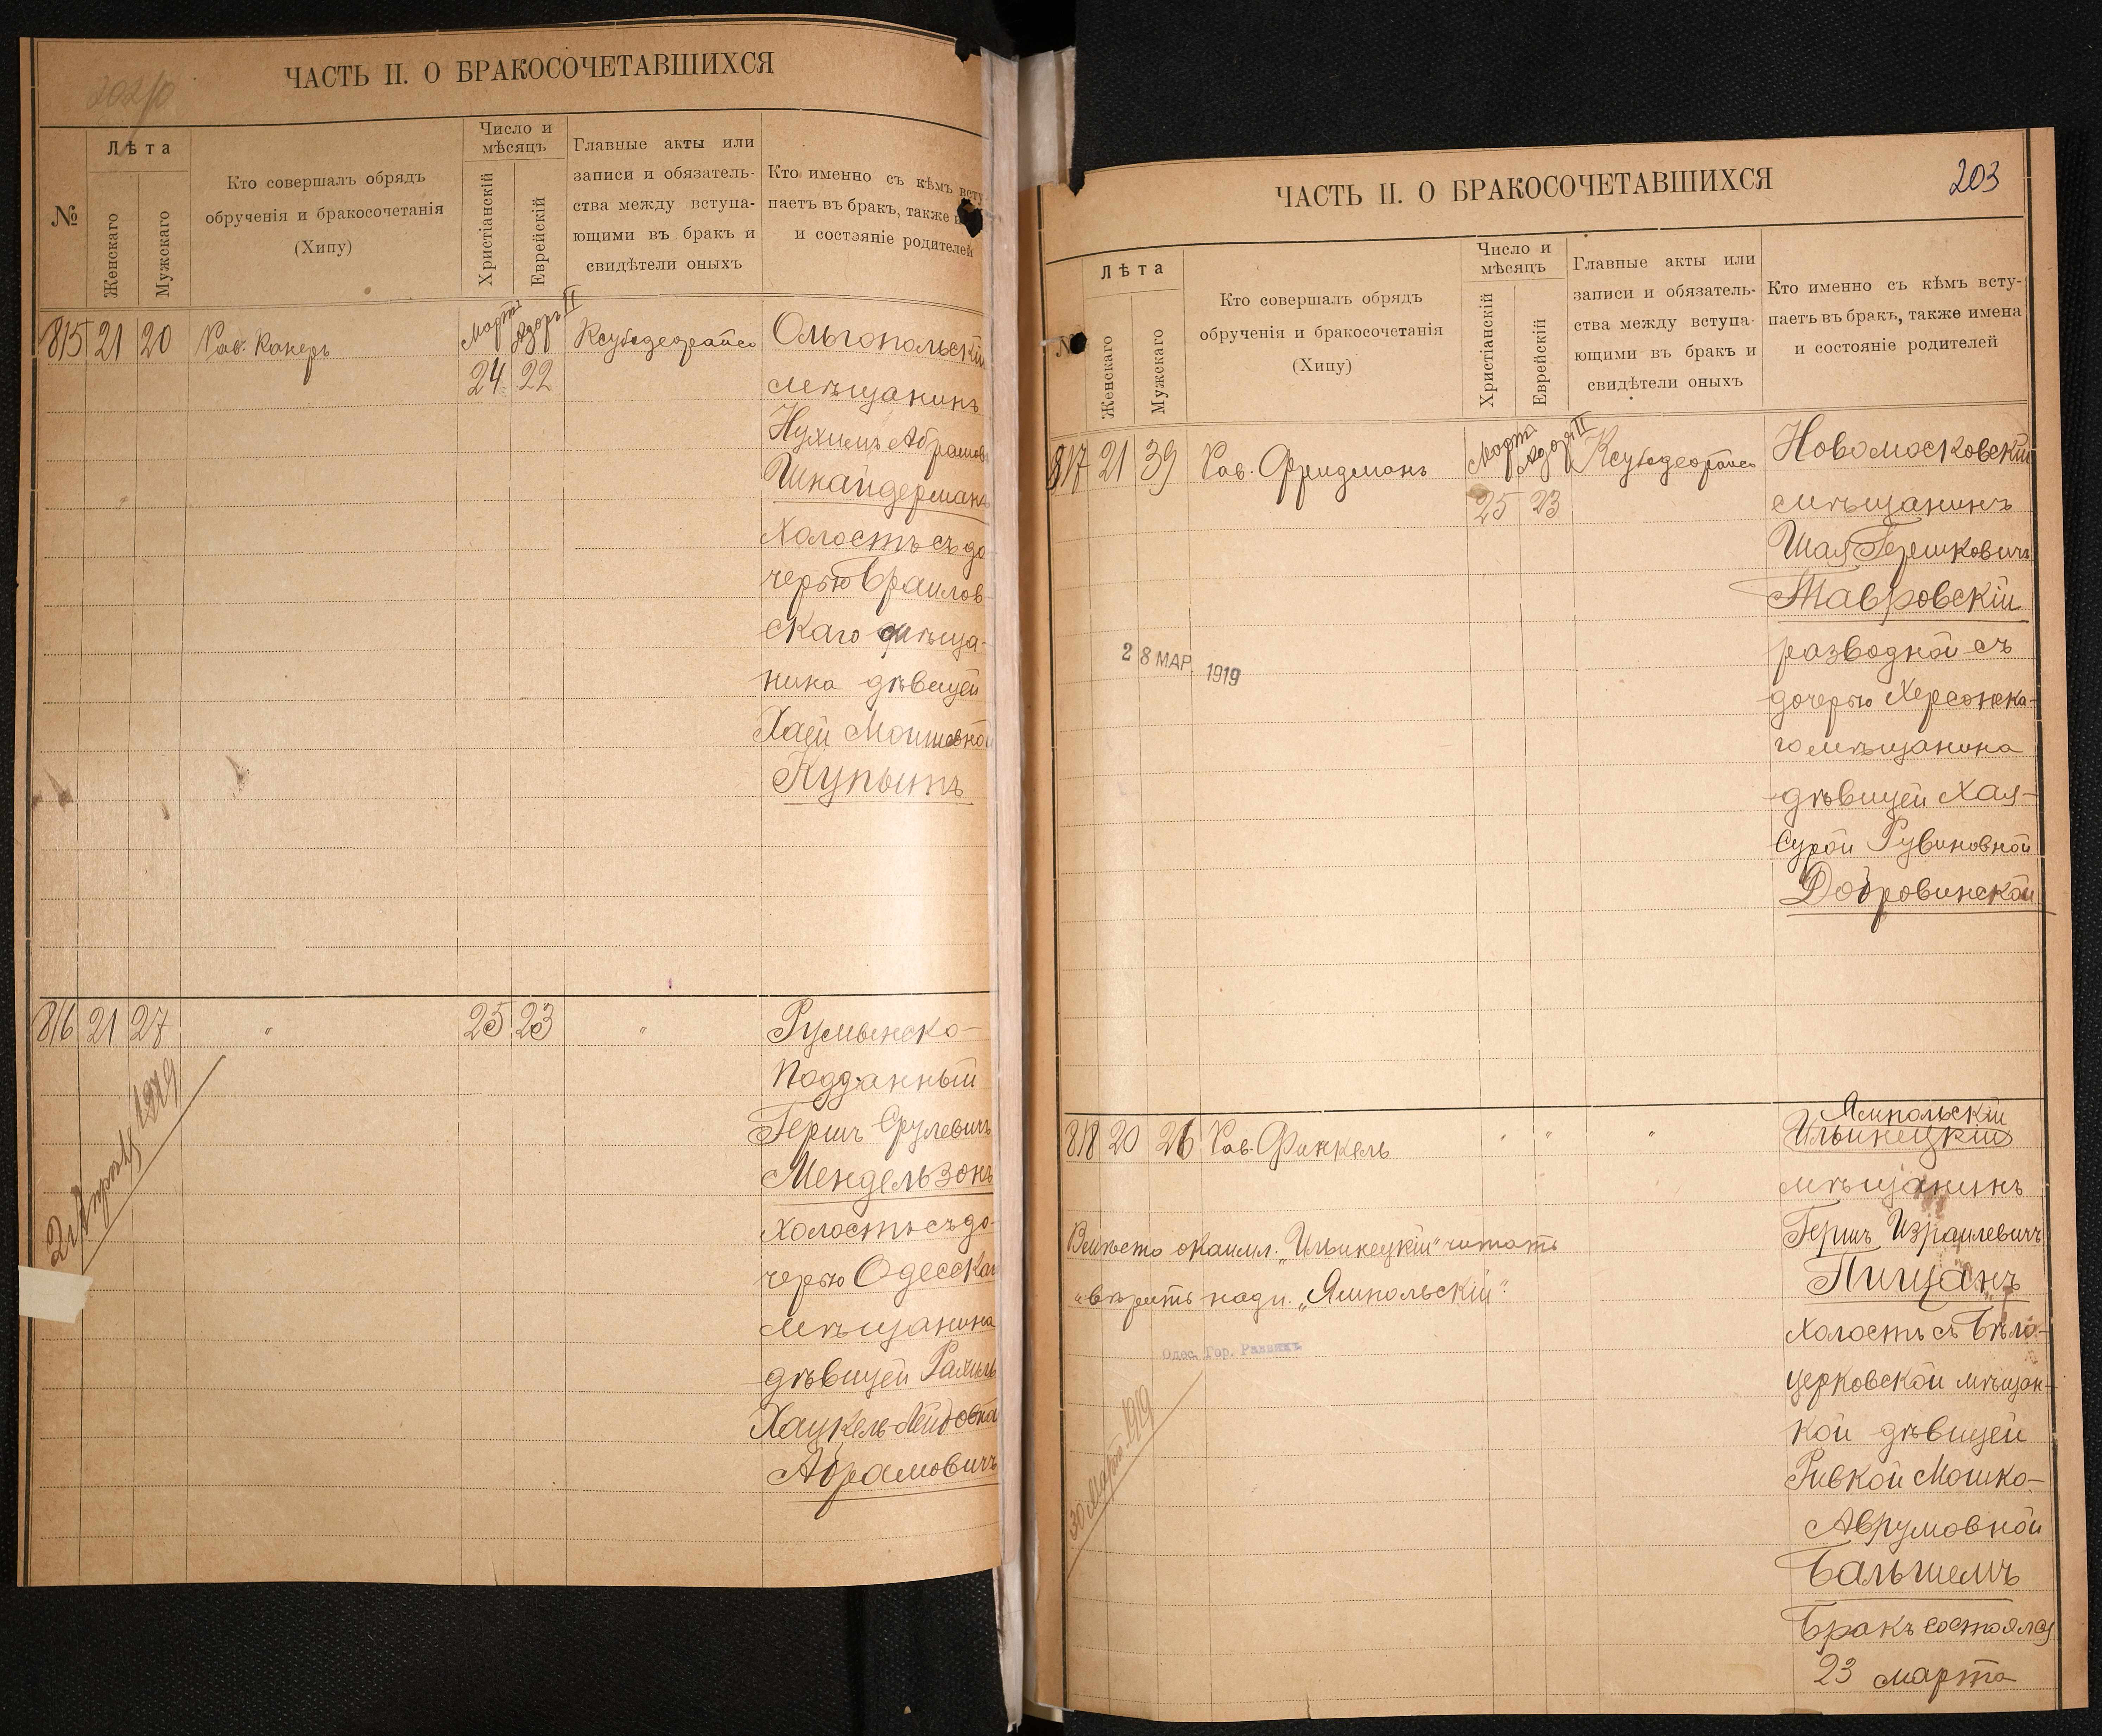 202/о
ЧАСТЬ II. О БРАКОСОЧЕТАВШИХСЯ
№
Лѣта
Женскаго
Мужскаго
Кто совершалъ обрядъ
обрученія и бракосочетанія
(Хипу)
Число и
мѣсяцъ
Христіанскій
Еврейскій
Главные акты или
записи и обязатель-
ства между вступа-
ющими въ бракъ и
свидѣтели оныхъ
Кто именно съ кѣмъ всту
паетъ въ бракъ, также
и состэяніе родителей
815 21 20 Рав. Канеръ
Марта Адоръ II
24 22
Ольгопольскій
мѣщанинъ
Нухимъ Абрамов
Шнайдерманъ
Холостъ съ до
черью Браилов
скаго мѣща-
нина дѣвицей
Хаей Мошковной
Купытъ
816 21 27 " 25 23 "
2 Апрѣля 1919
Румынско-
подданный
Гершъ Срулевичъ
Мендельзонъ
Холостъ съ до-
черью Одесскаг
мѣщанина
дѣвицей Рахиль
Хацкель-Лейбовна
Абрамовичъ
203
ЧАСТЬ II. О БРАКОСОЧЕТАВШИХСЯ
№
Лѣта
Женскаго
Мужскаго
Кто совершалъ обрядъ
обрученія и бракосочетанія
(Хипу)
Число и
мѣсяцъ
Христіанскій
Еврейскій
Главные акты или
записи и обязатель-
ства между вступа-
ющими въ бракъ и
свидѣтели оныхъ
Кто именно съ кѣмъ всту-
паетъ въ бракъ, также имена
и состояніе родителей
817 21 39 Рав. Фридманъ
Марта Адоръ II
25 23
28 МАР 1919
Новомосковскій
мѣщанинъ
Шая Гершковичъ
Тавровскій
разводной съ
дочерью Херсонска-
го мѣщанина
дѣвицей Хая-
Сурой Рувиновной
Добровинской
818 20 26 Рав. Финкель " " "
Ямпольскій
Ильинецкій
мѣщанинъ
Гершъ Израилевичъ
Пищанъ
Холостъ съ Бѣло-
церковской мѣщан-
кой дѣвицей
Ривкой Мошко-
Аврумовной
Бальшемъ
Бракъ состоялся
23 марта
Вмѣсто окаимл. „Ильинецкій" читать
и вѣрить надп. „Ямпольскій".
Одес. Гор. Раввинъ
30 Марта 1919